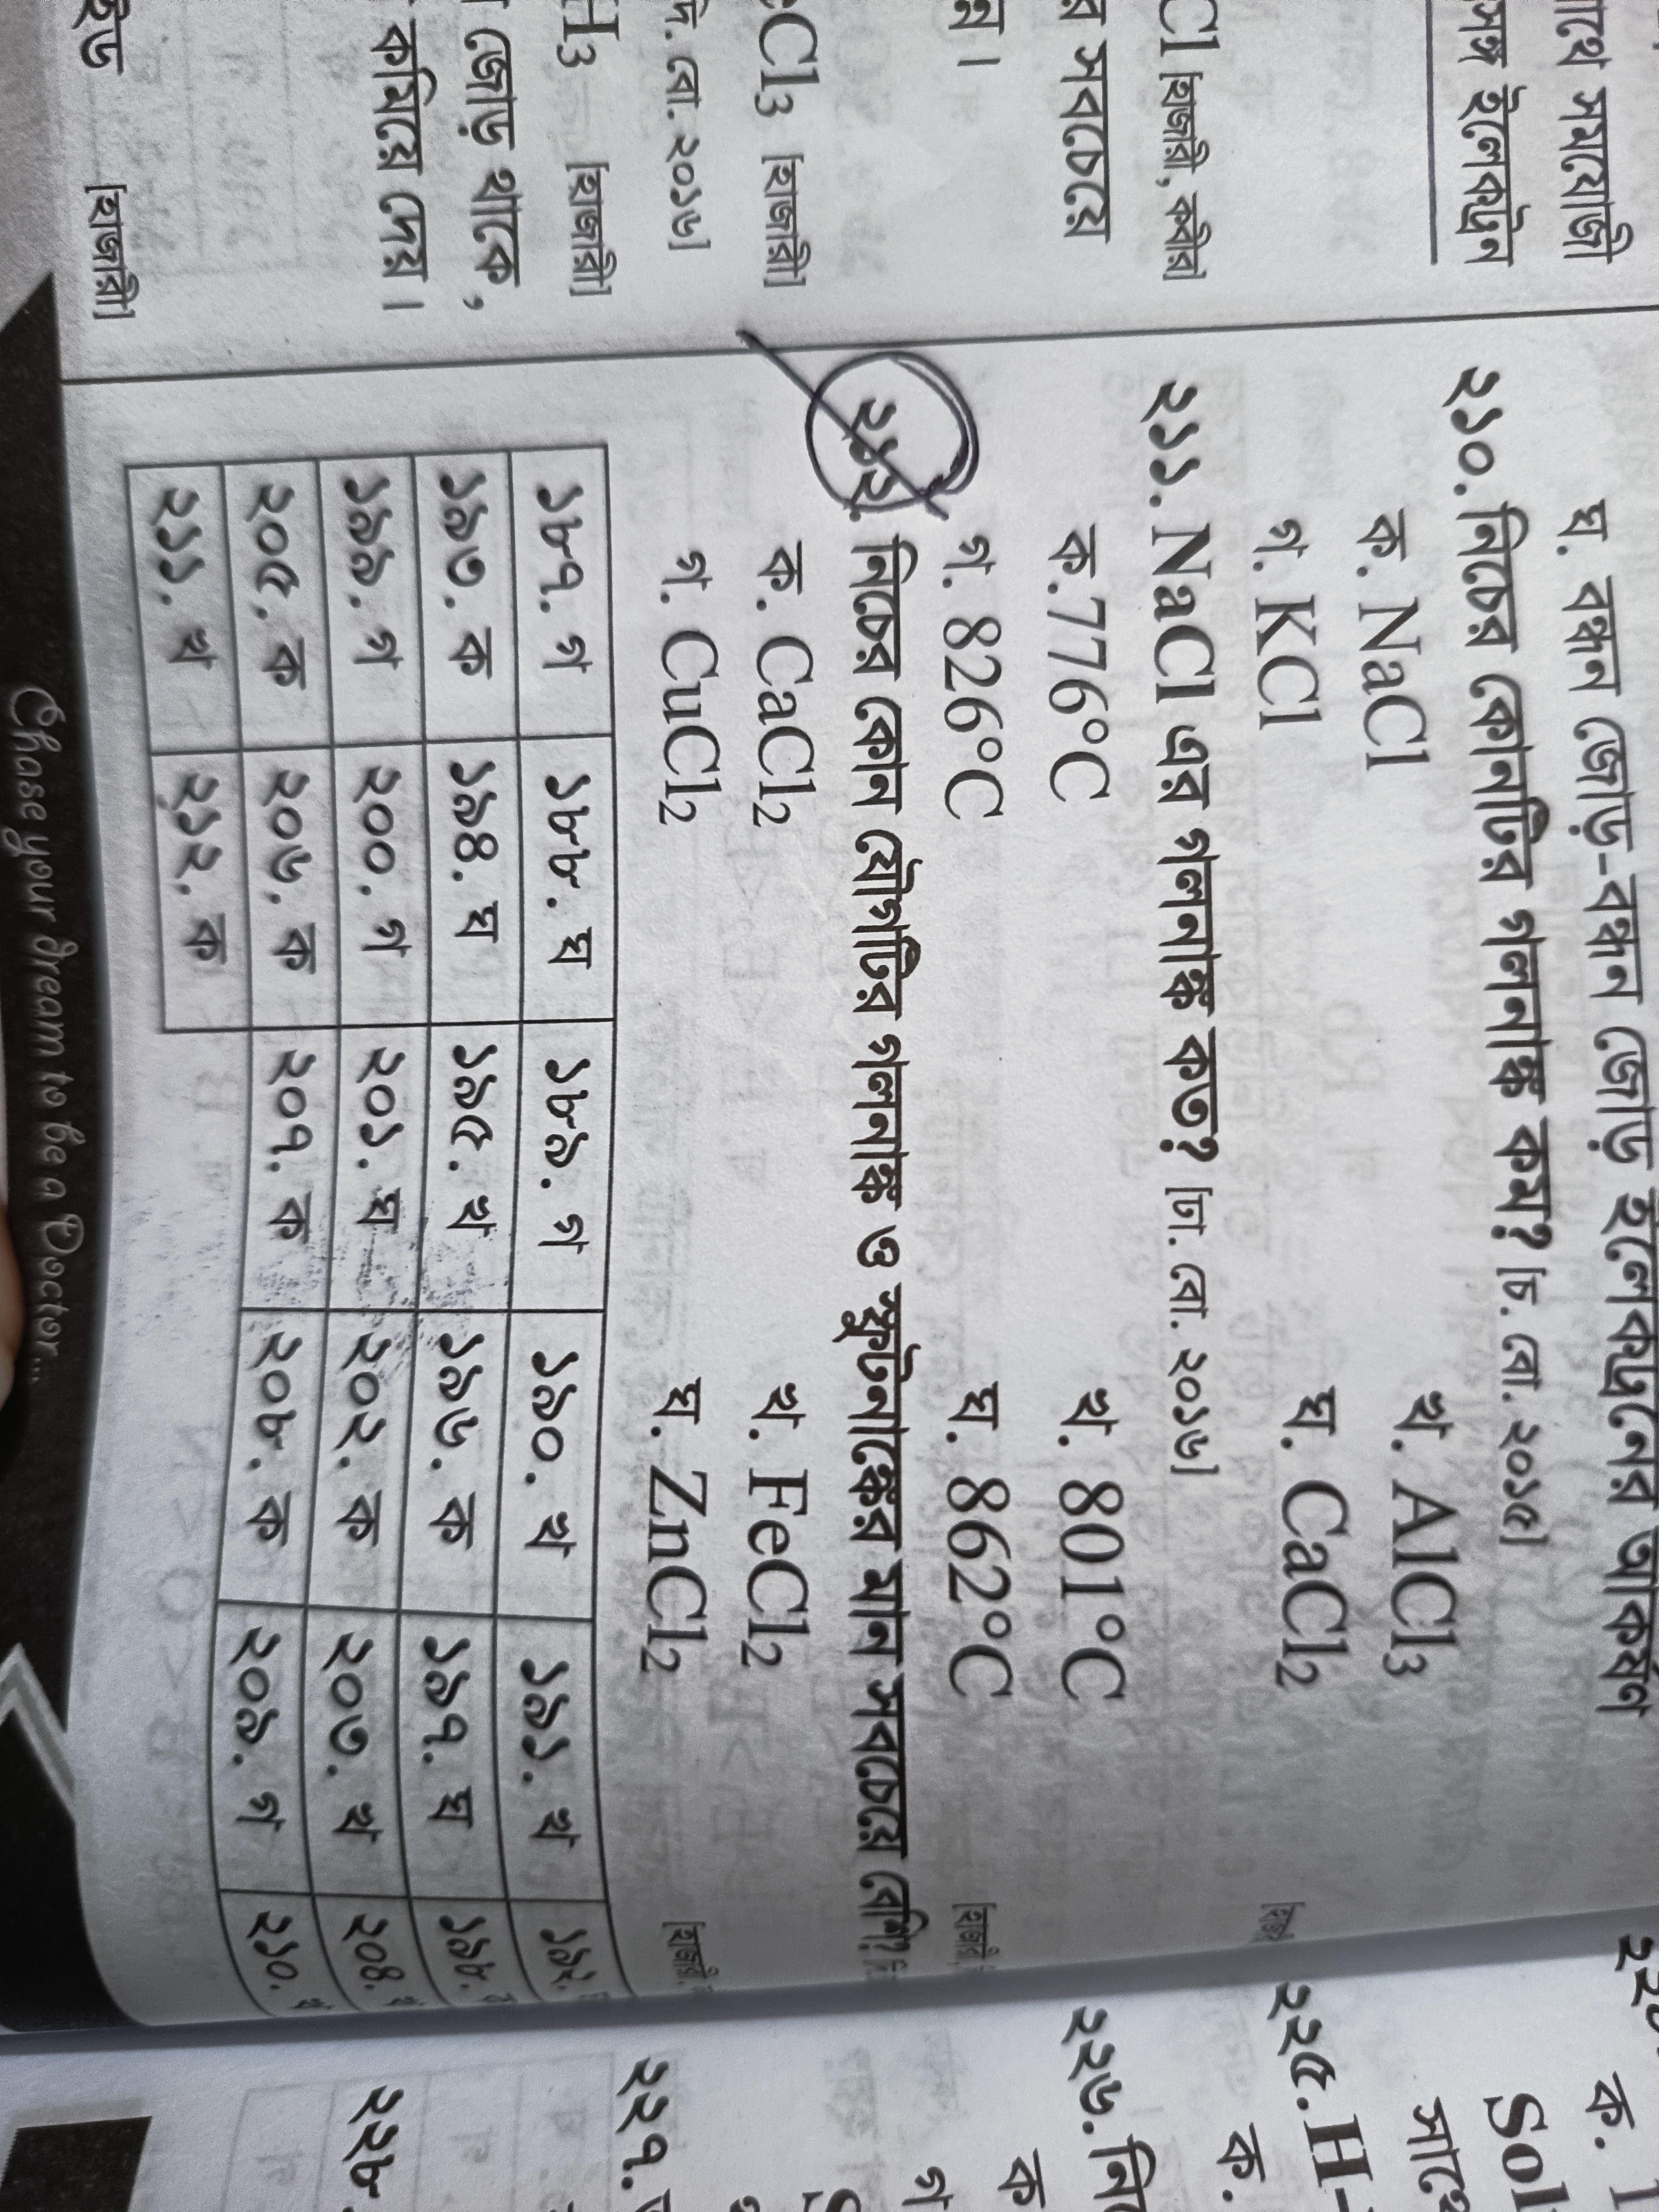 াথে সমযোজী
মেষ্ট ইলেকট্রন
Cl [হাজারী, কবীর]
র সবচেয়ে
ন।
eCl₃ [হাজারী]
দি. বো. ২০১৬]
H₃ [হাজারী]
জোড় থাকে,
কমিয়ে দেয়।
[হাজারী]
ঘ. বন্ধন জোড়-বন্ধন জোড় ইলেকট্রনের আকর্ষণ
২১০. নিচের কোনটির গলনাঙ্ক কম? [চ. বো. ২০১৫]
ক. NaCl খ. AlCl₃
গ. KCl ঘ. CaCl₂
২১১. NaCl এর গলনাঙ্ক কত? [ঢা. বো. ২০১৬]
ক. 776°C খ. 801°C
গ. 826°C ঘ. 862°C [হাজারী,
২১২. নিচের কোন যৌগটির গলনাঙ্ক ও স্ফুটনাঙ্কের মান সবচেয়ে বেশি?
ক. CaCl₂ খ. FeCl₂
গ. CuCl₂ ঘ. ZnCl₂ [হাজারী,
১৮৭. গ ১৮৮. ঘ ১৮৯. গ ১৯০. খ ১৯১. খ ১৯২.
১৯৩. ক ১৯৪. ঘ ১৯৫. খ ১৯৬. ক ১৯৭. ঘ ১৯৮.
১৯৯. গ ২০০. গ ২০১. ঘ ২০২. ক ২০৩. খ ২০৪.
২০৫. ক ২০৬. ক ২০৭. ক ২০৮. ক ২০৯. গ ২১০. খ
২১১. খ ২১২. ক
Chase your dream to be a Doctor...
ক.
Sol
সাথে
২২৫. H-
ক.
২২৬. নি
ক
গ
২২৭.
২২৮.